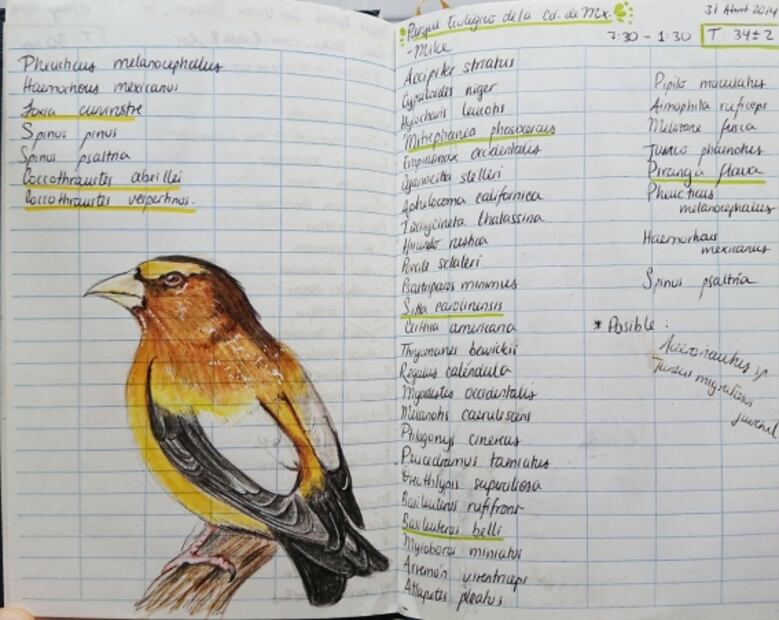 Pheucticus melanocephalus
Haemorhous mexicanus
Loxia curvirostre
Spinus pinus
Spinus psaltria
Coccothraustes abeillei
Coccothraustes vespertinus.
Parque Ecologico de la Cd. de Mx.
31 Abril 2014
-Mike
7:30 - 1:30
T: 34±2
Accipiter striatus
Cypseloides niger
Hylocharis leucotis
Mitrephanes phaeocercus
Empidonax occidentalis
Cyanocitta stelleri
Aphelocoma californica
Tachycineta thalassina
Hirundo rustica
Poecile sclateri
Psaltriparus minimus
Sitta carolinensis
Certhia americana
Thryomanes bewickii
Regulus calendula
Myadestes occidentalis
Melanotis caerulescens
Ptilogonys cinereus
Peucedramus taeniatus
Oreothlypis superciliosa
Basileuterus rufifrons
Basileuterus belli
Myioborus miniatus
Arremon virenticeps
Atlapetes pileatus
Pipilo maculatus
Aimophila ruficeps
Melozone fusca
Junco phaenotus
Piranga flava
Pheucticus
melanocephalus
Haemorhous
mexicanus
Spinus psaltria
* Posible :
sp
Turdus migratorius
juvenil